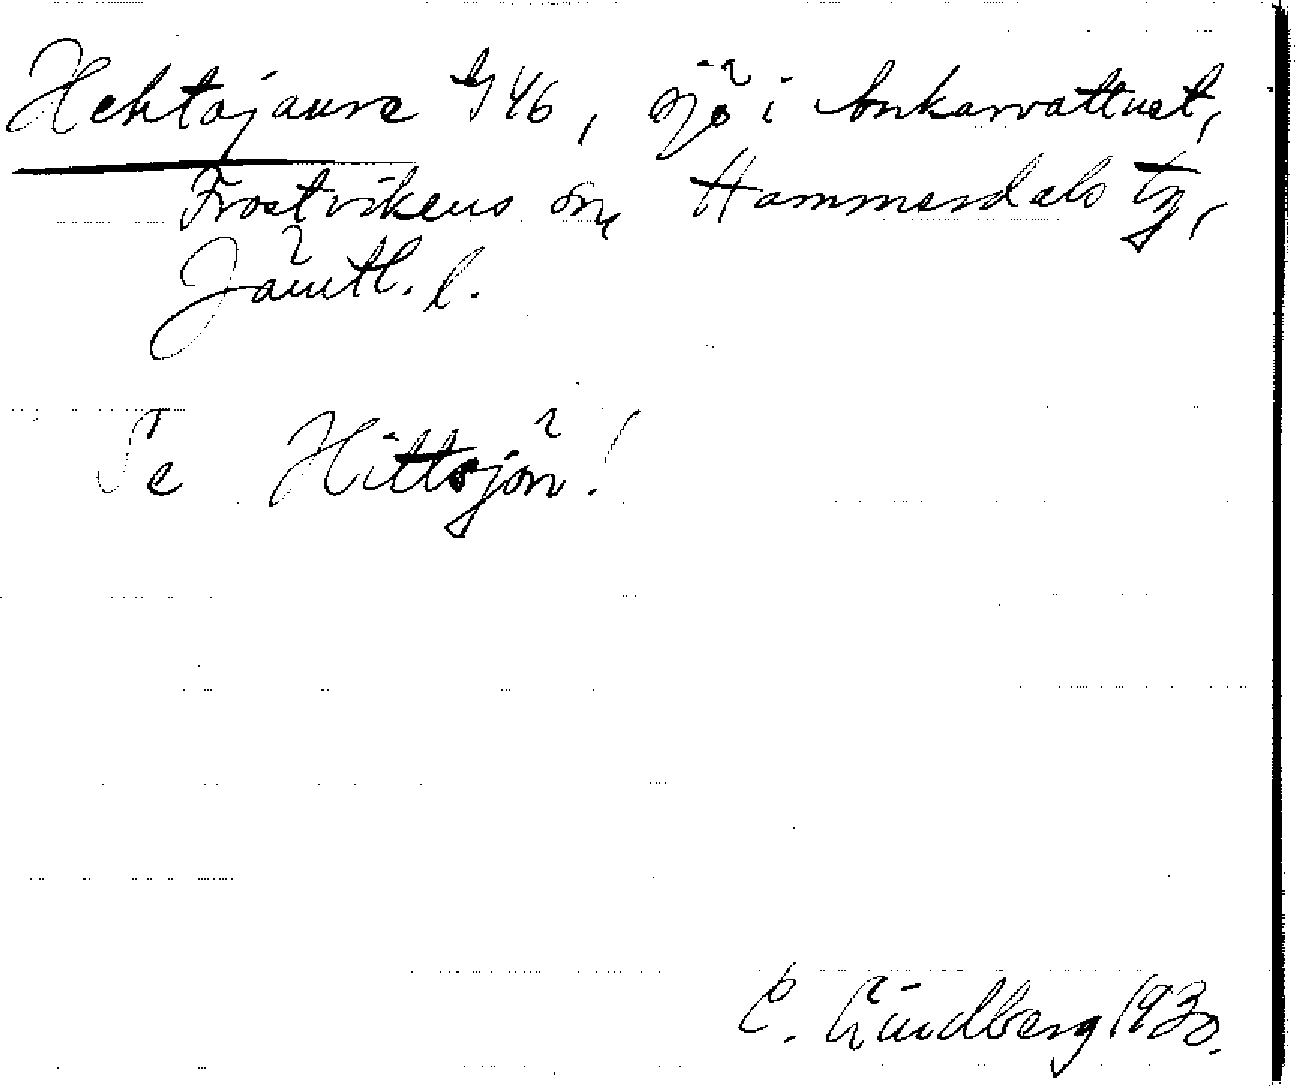 Hehtajaure G46, sjö i Ankarvattnet,
Frostvikens sn, Hammerdals tg,
Jämtl. l.
Se Hittsjön!
C. Lindberg 1930.